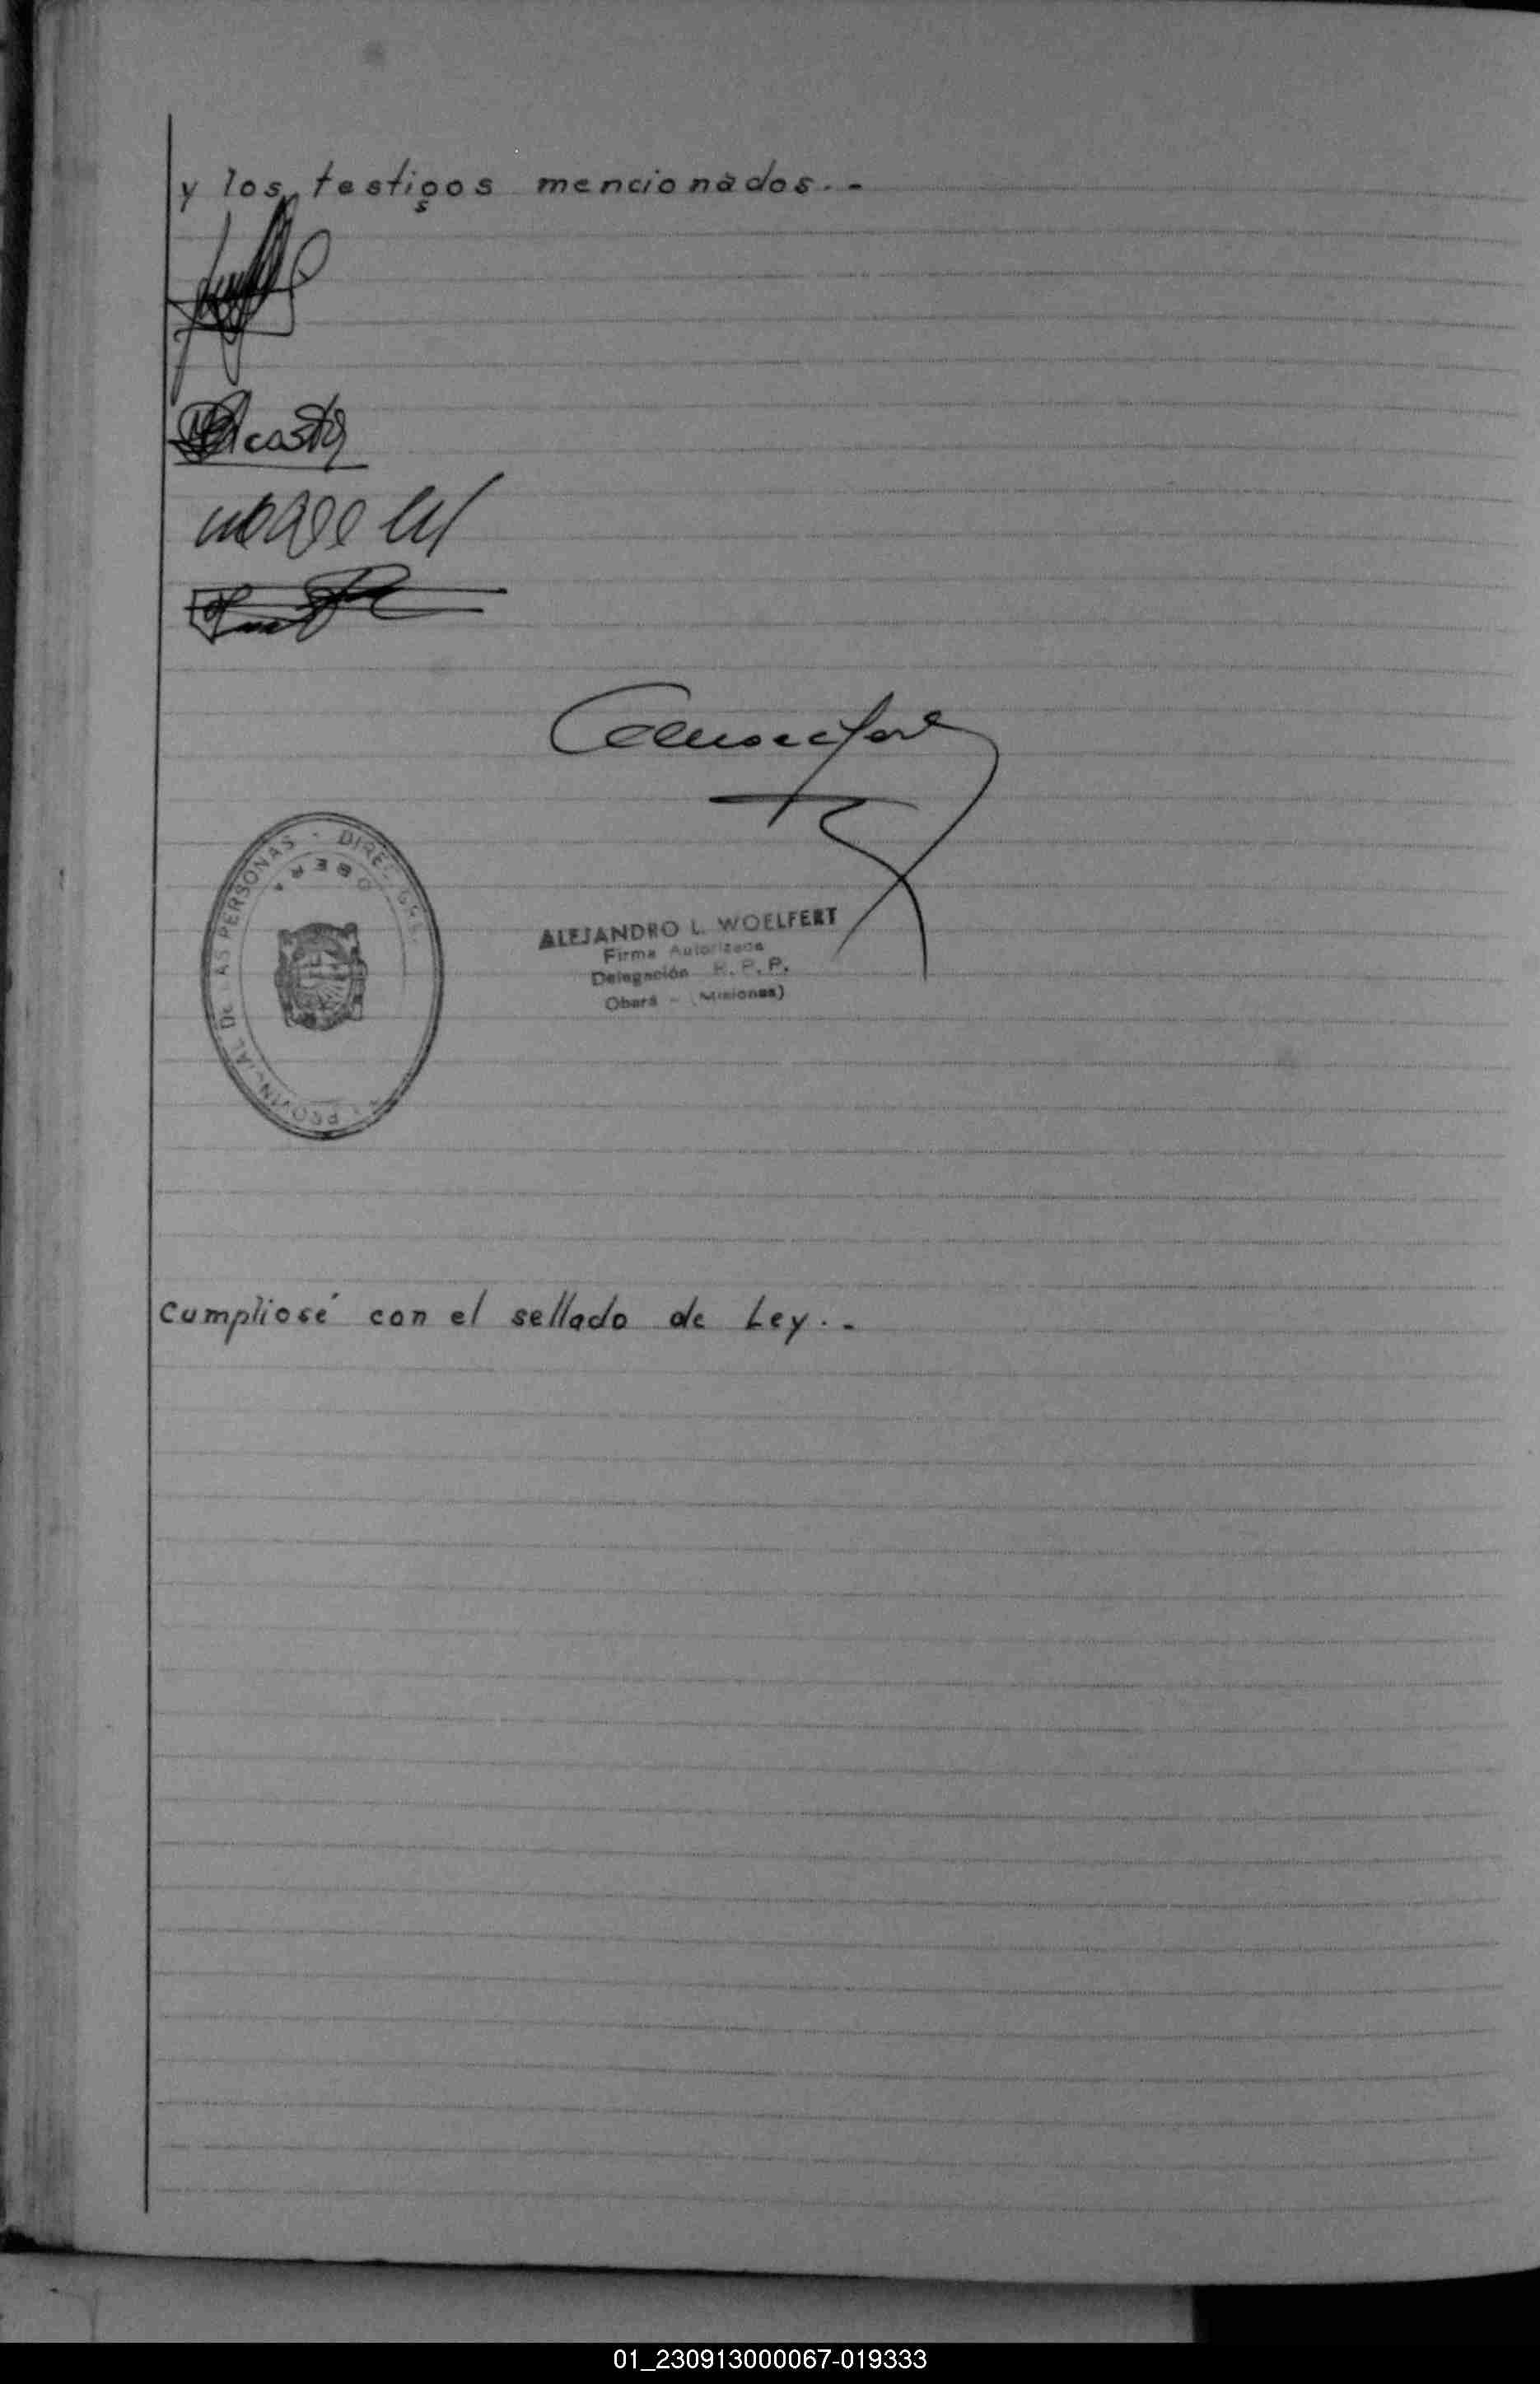 y los testigos mencionados.-
Acosta
DIREC. GRL. PROVINCIAL DE LAS PERSONAS -
OBERA
ALEJANDRO L. WOELFERT
Firma Autorizada
Delegación R. P. P.
Oberá - (Misiones)
Cumpliosé con el sellado de Ley.-
01_230913000067-019333